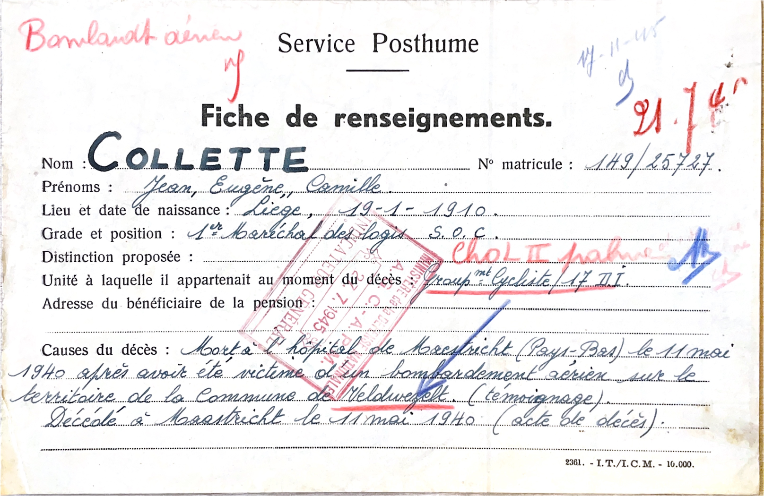 Bombardt aérien
Service Posthume
17-11-45
21.7
Fiche de renseignements.
Nom : COLLETTE N° matricule : 149/25727.
Prénoms : Jean, Eugène, Camille.
Lieu et date de naissance : Liège, 19-1-1910.
Grade et position : 1er Maréchal des logis S.O.C.
Distinction proposée : Chol II palme
Unité à laquelle il appartenait au moment du décès : Groupmt Cycliste/17 D.I
Adresse du bénéficiaire de la pension :
7.1945
Causes du décès : Mort à l'hôpital de Maestricht (Pays-Bas) le 11 mai
1940 après avoir été victime d'un bombardement aérien sur le
territoire de la Commune de Veldwezelt. (témoignage).
Décédé à Maastricht le 11 mai 1940 (acte de décès).
2361. - I.T./I.C.M. - 10.000.